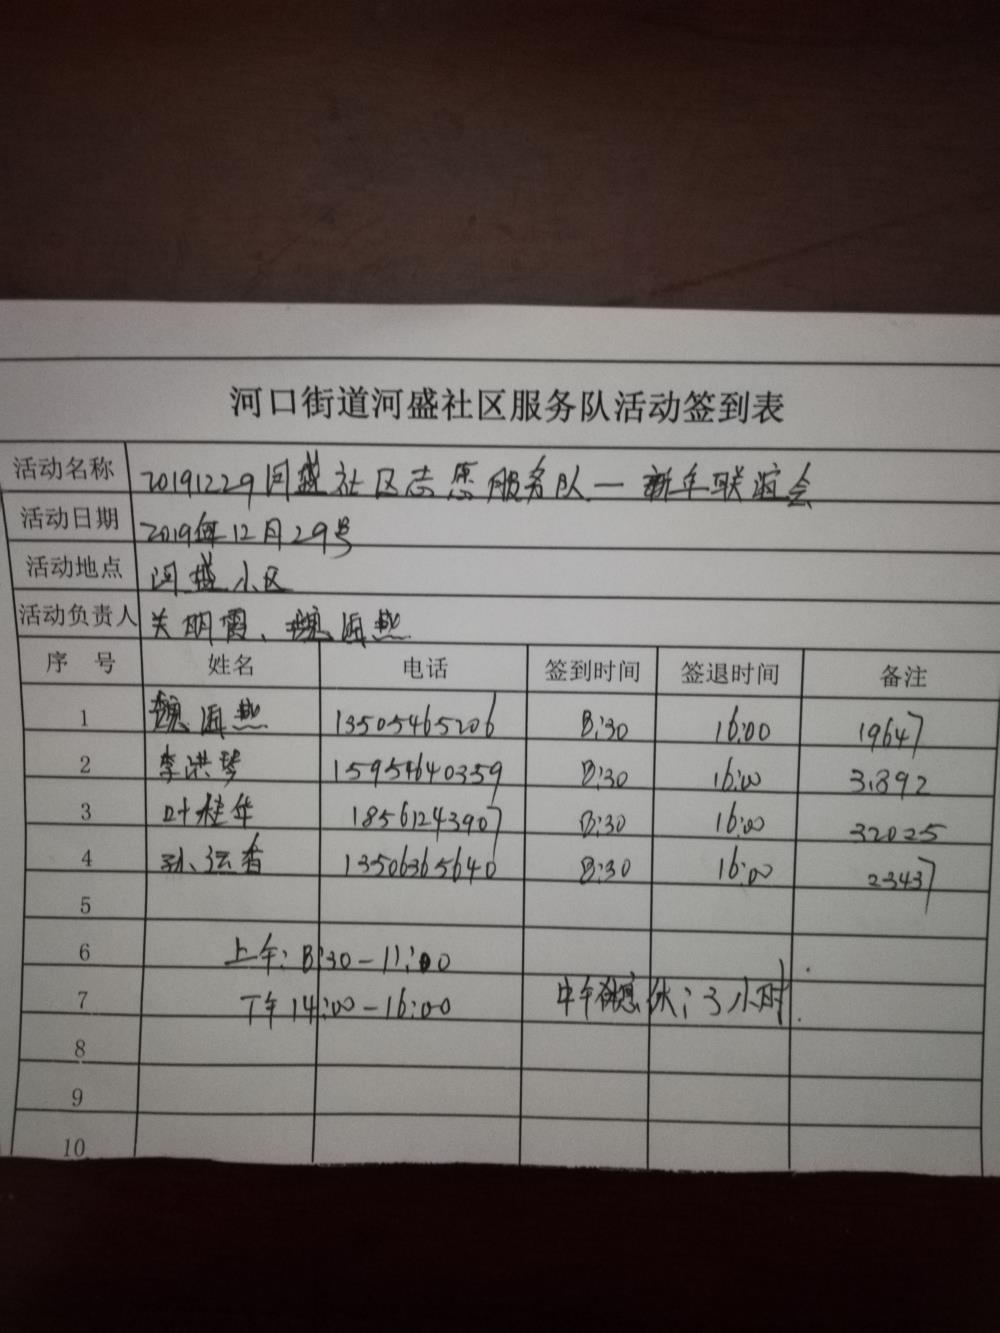 河口街道河盛社区服务队活动签到表
活动名称 20191229河盛社区志愿服务队—新年联谊会
活动日期 2019年12月29号
活动地点 河盛小区
活动负责人 关明霞、魏海燕
序 号 姓名 电话 签到时间 签退时间 备注
1 魏海燕 13505465206 8:30 16:00 19647
2 李洪琴 15954640359 8:30 16:00 31892
3 叶桂华 18561243907 8:30 16:00 32025
4 孙运香 13506365640 8:30 16:00 23437
5
6 上午:8:30-11:00
7 下午14:00-16:00 中午休:3小时.
8
9
10